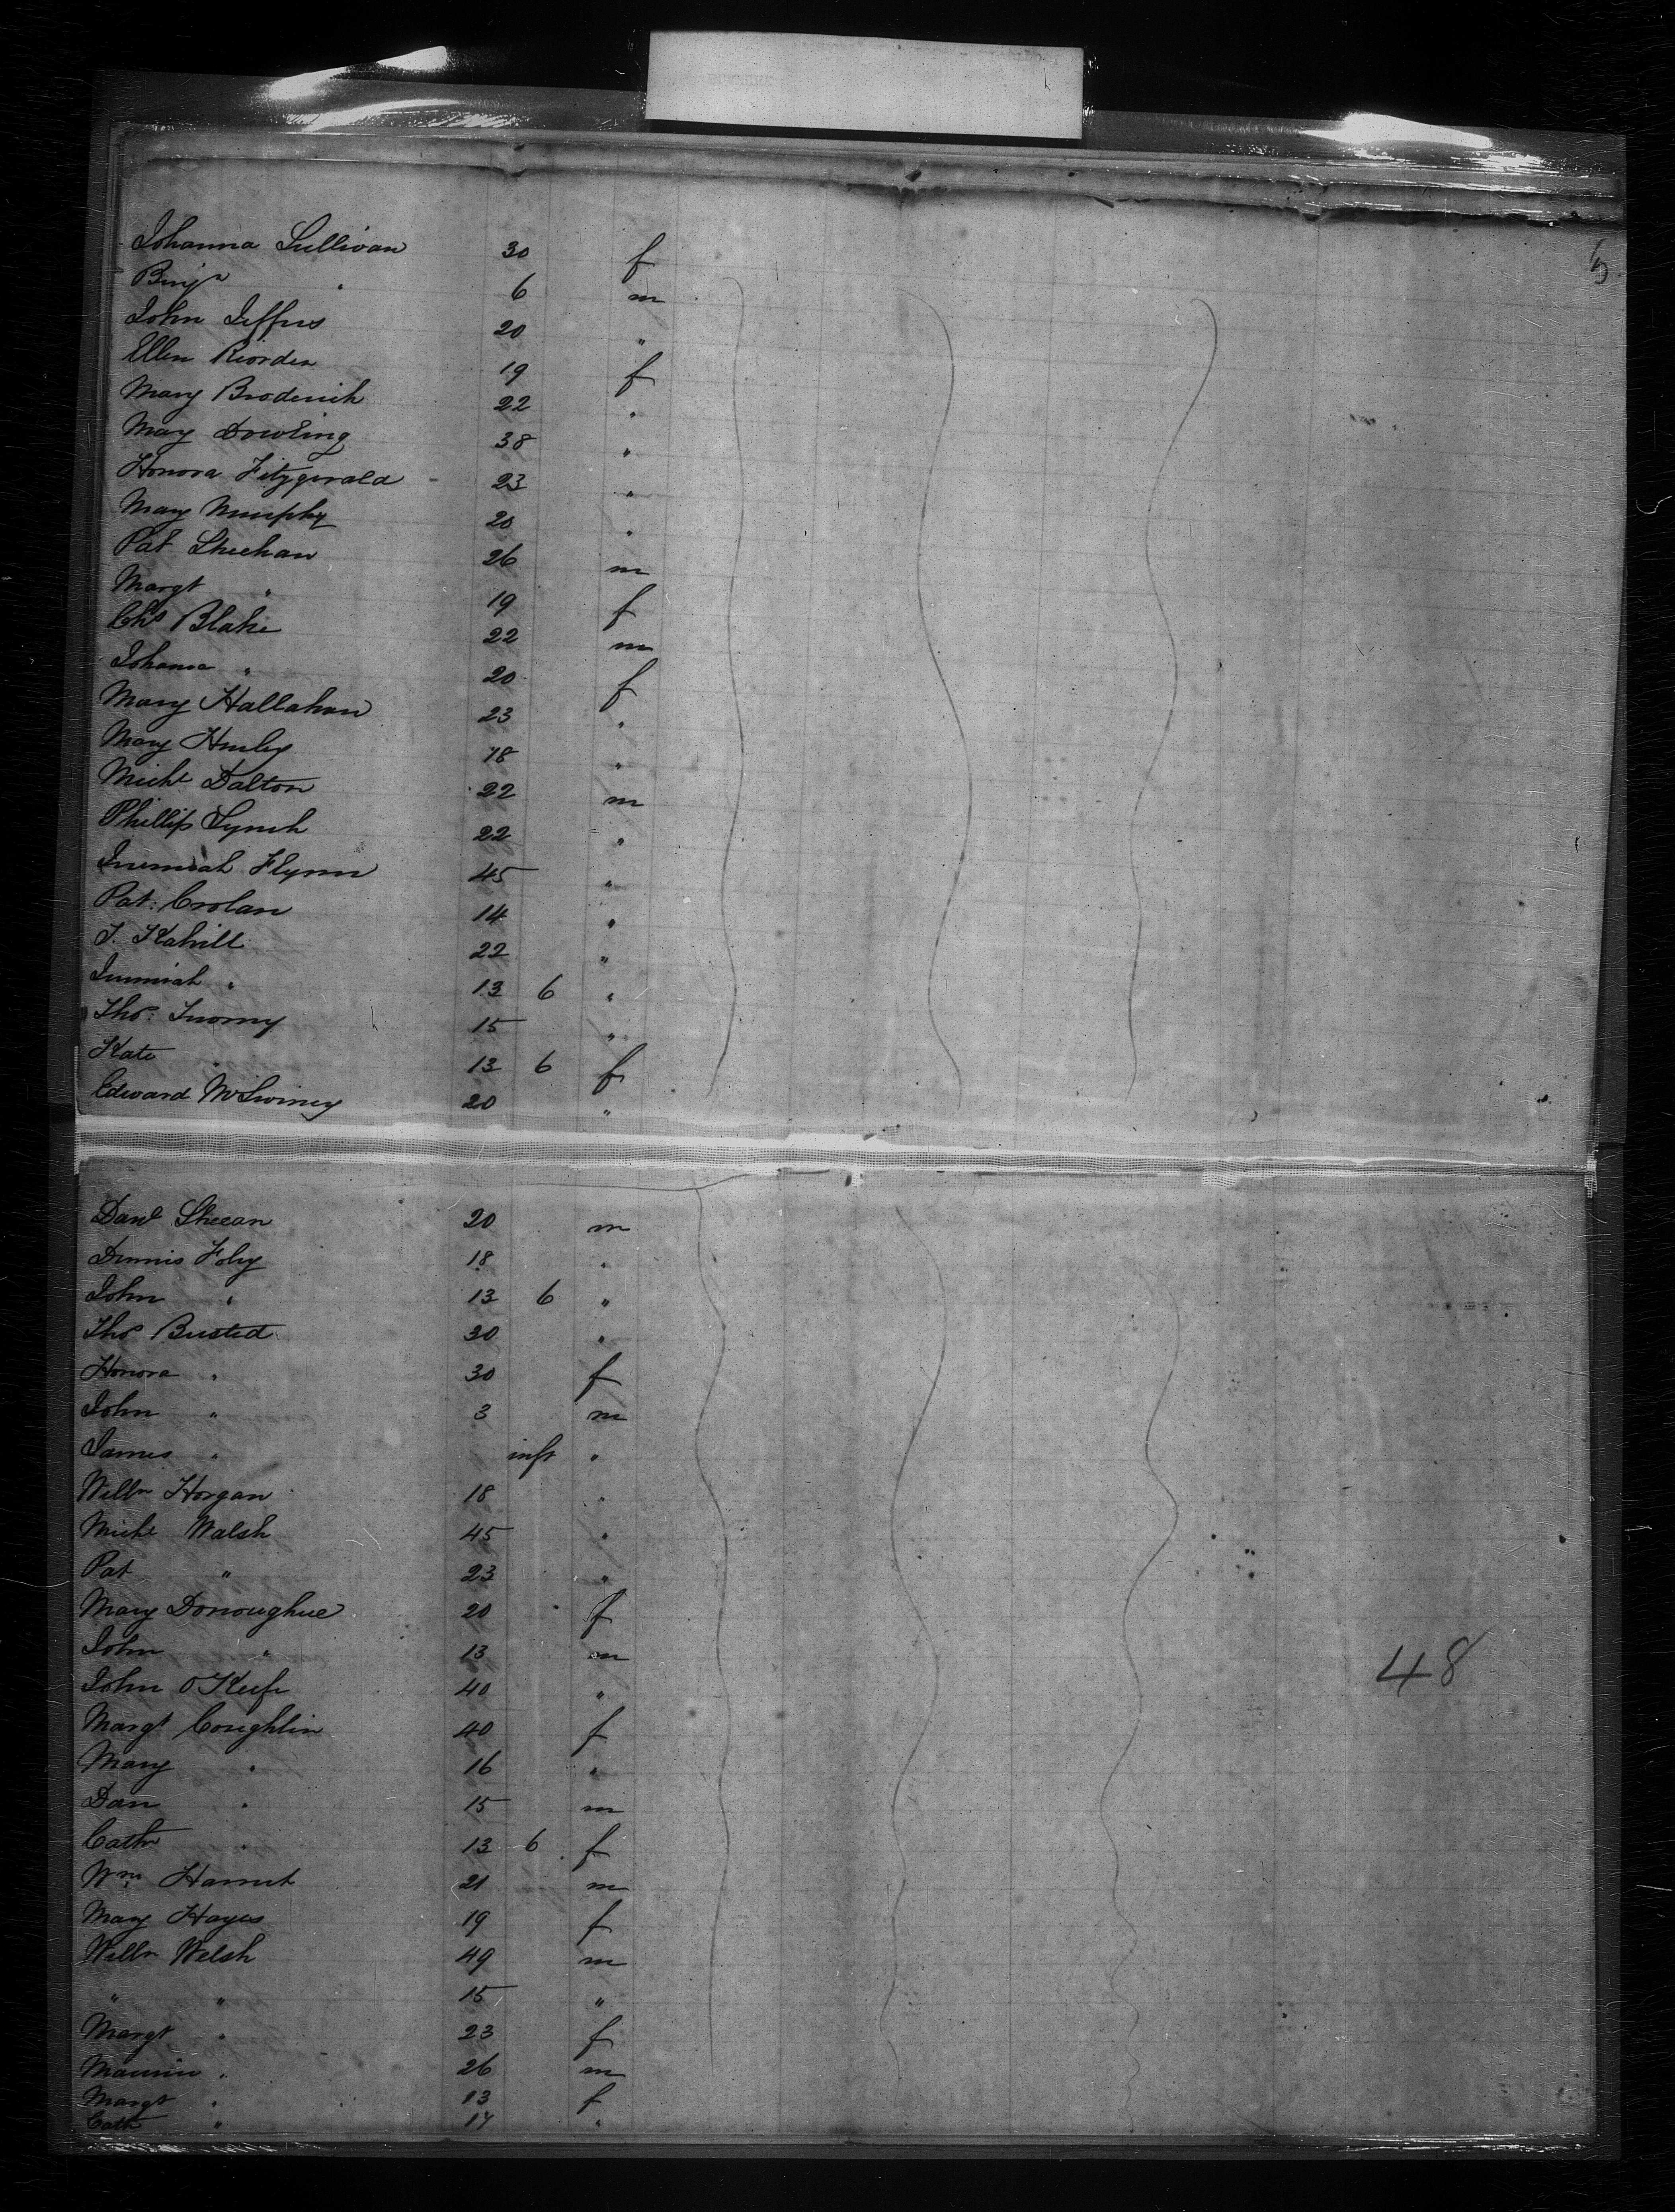 Johanna Sullivan 30 f
Benjn " 6 m
John Jeffers 20 "
Ellen Riorden 19 f
Mary Broderick 22 "
May Dowling 38 "
Honora Fitzgerald 23 "
Mary Murphy 20 "
Pat Sheehan 26 m
Margt " 19 f
Chs Blake 22 m
Johana " 20 f
Mary Hallahan 23 "
Mary Hurley 18 "
Michl Dalton 22 m
Phillip Lynch 22 "
Jeremiah Flynn 45 "
Pat: Crolan 14 "
J. Kahill 22 "
Jeremiah " 13 6 "
Thos: Twomy 15 "
Kate " 13 6 f
Edward McSwiney 20 "
Danl Sheean 20 m
Dennis Foley 18 "
John " 13 6 "
Thos Busted 30 "
Honora " 30 f
John " 3 m
James " inft "
Willm Horgan 18 "
Michl Walsh 45 "
Pat " 23 "
Mary Donoughue 20 f
John " 13 m
John O'Keefe 40 "
Margt Coughlin 40 f
Mary " 16 "
Dan " 15 m
Cath " 13 6 f
Wm 21 m
Mary Hayes 19 f
Willm Welsh 49 m
" " 15 "
Margt " 23 f
Maurice " 26 m
Margt " 13 f
Cath " 17 "
48